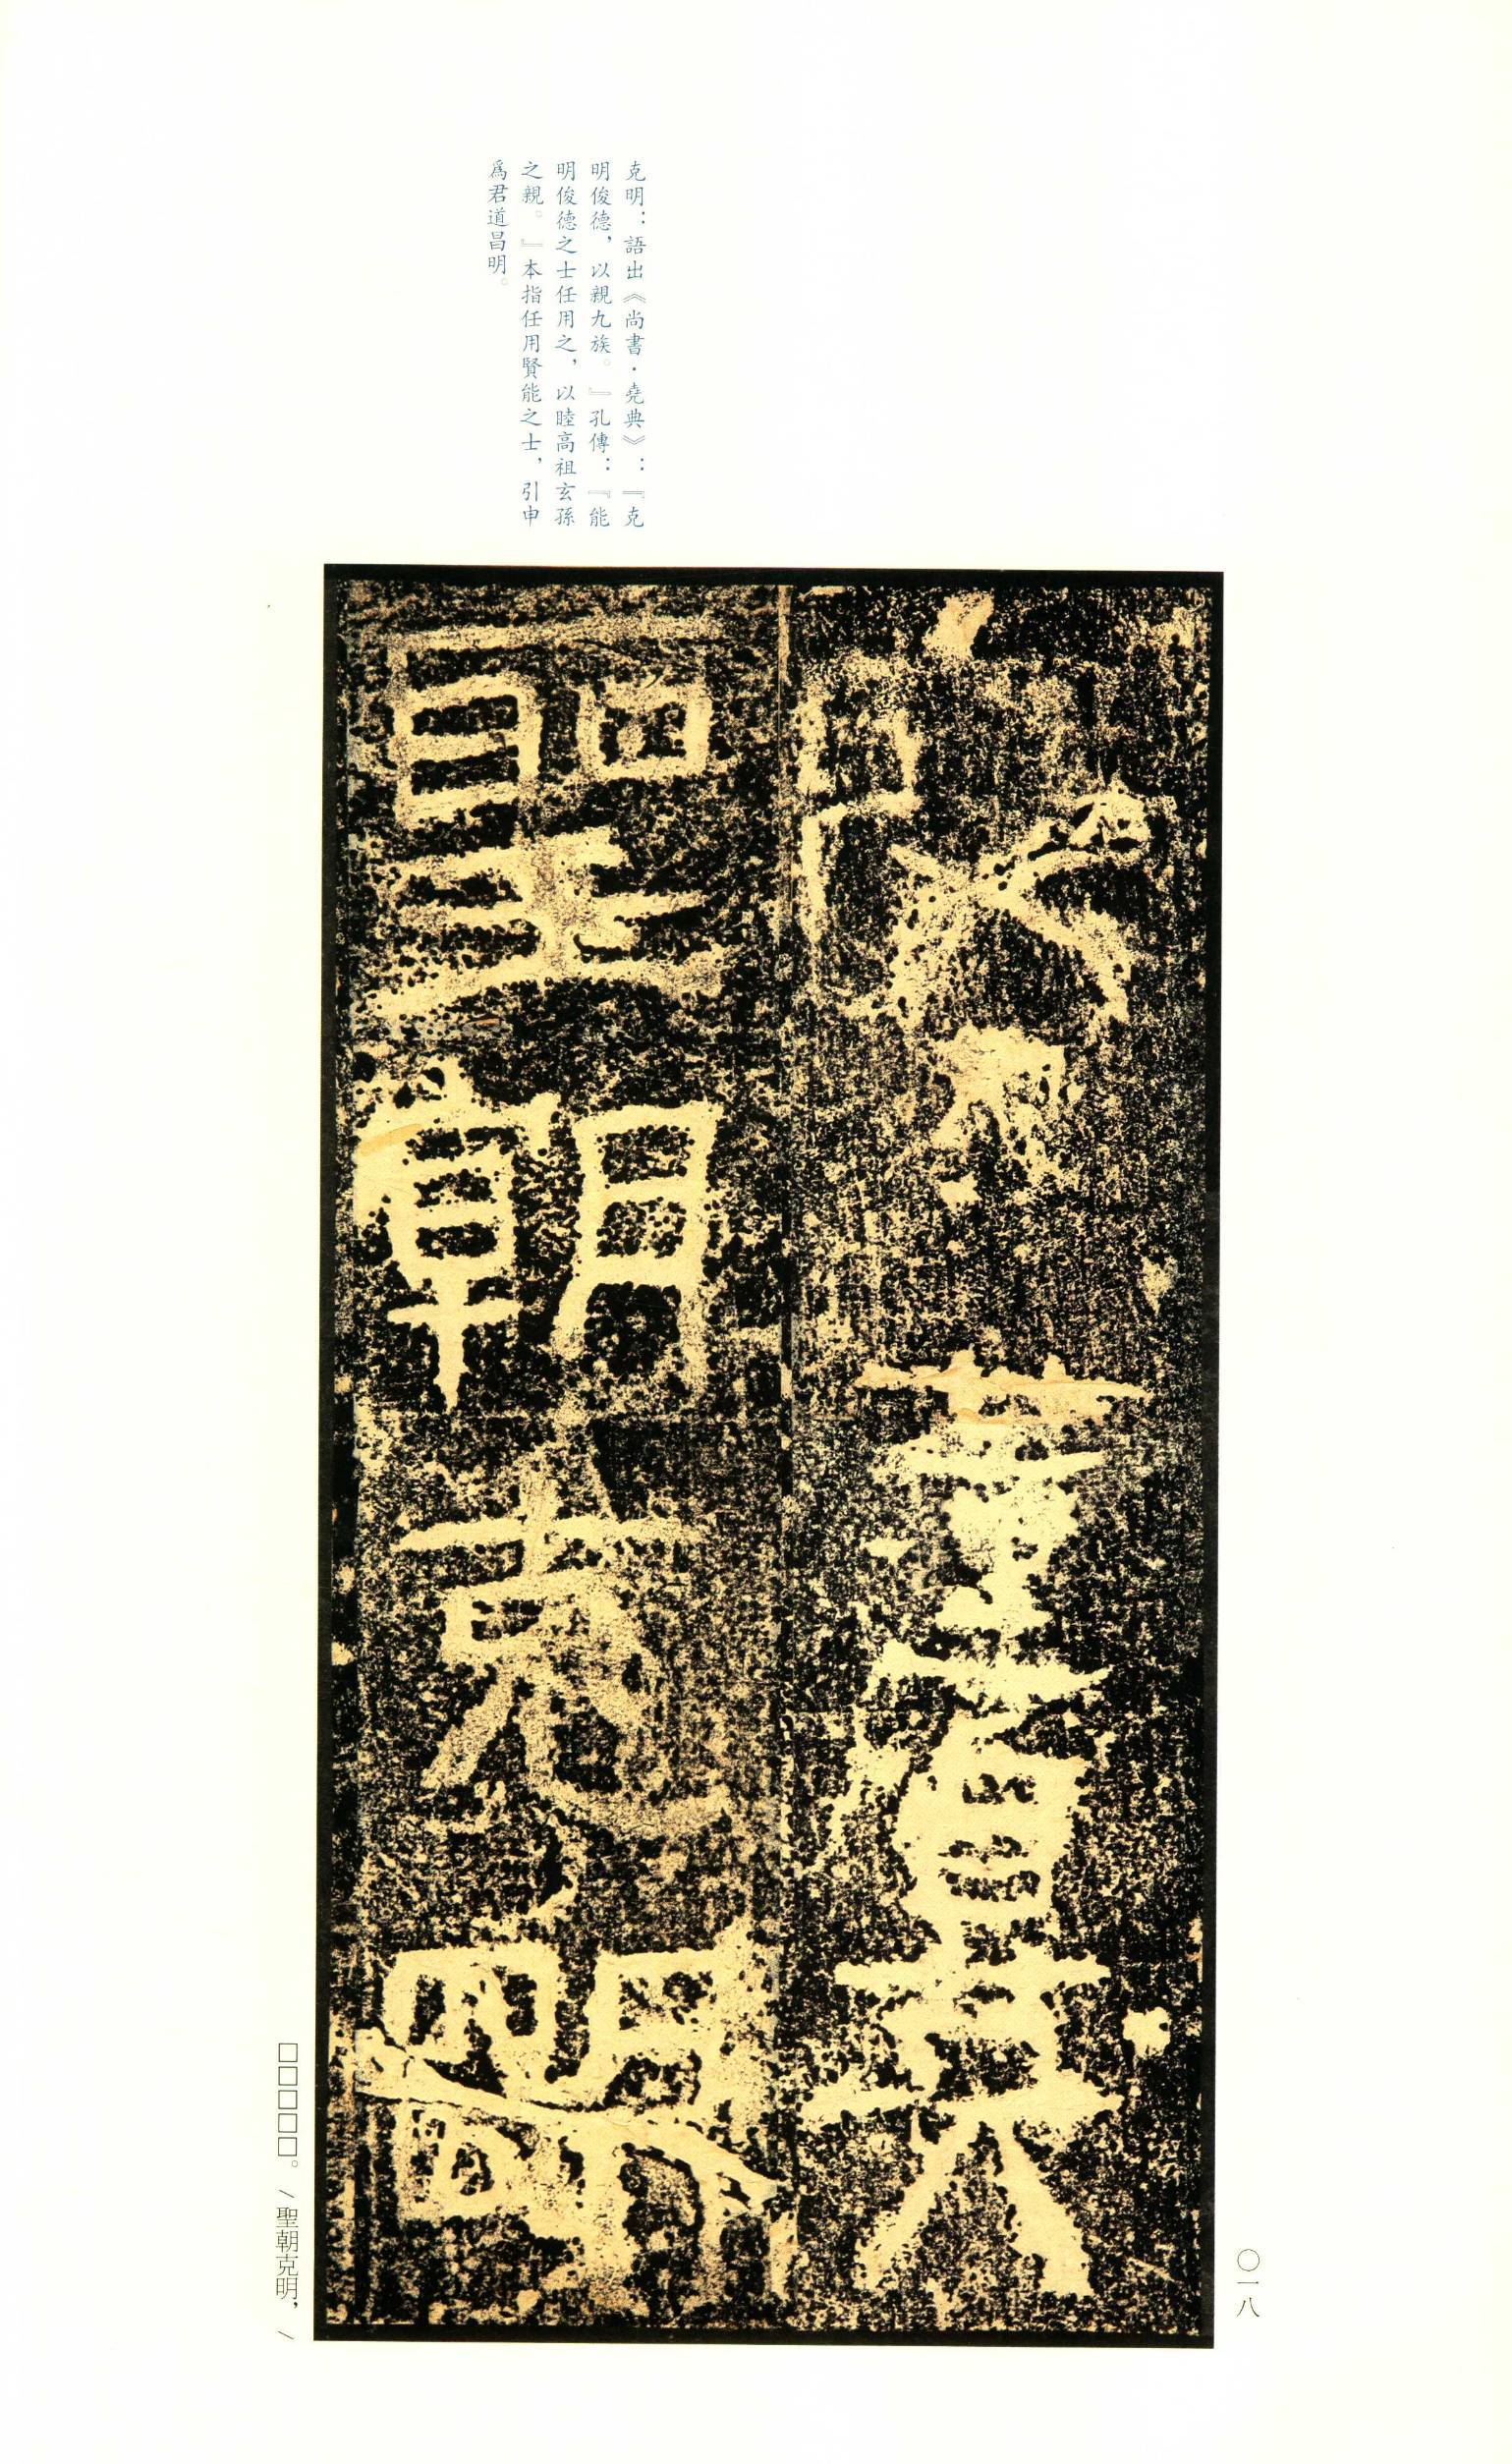 克明：語出《尚書·堯典》：『克
明俊德，以親九族。』孔傳：『能
明俊德之士任用之，以睦高祖玄孫
之親。』本指任用賢能之士，引申
爲君道昌明。
聖朝克明
□□□□□。／聖朝克明，／
〇一八